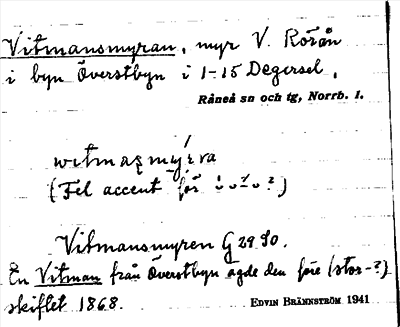 Vitmansmyran, myr V. Rörån
i byn Överstbyn i 1-15 Degersel,
Råneå sn och tg, Norrb. l.
witmaṣmýrra
(Fel accent för
Vitmansmyren G 29.90.
En Vitman från Överstbyn ägde den före (stor-?)
skiftet 1868.
EDVIN BRÄNNSTRÖM 1941